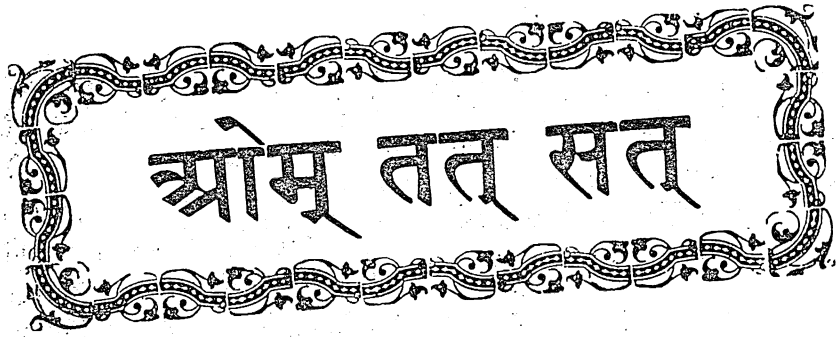 ओम् तत् सत्